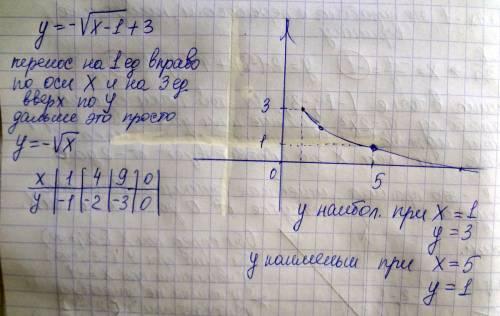 y=-√x-1+3
перенос на 1 ед вправо
по оси X и на 3 ед
вверх по y
дальше это просто
y=-√x
x 1 4 9 0
y -1 -2 -3 0
3
1
0
5
y наибол. при x=1
y=3
y наименьш при x=5
y=1